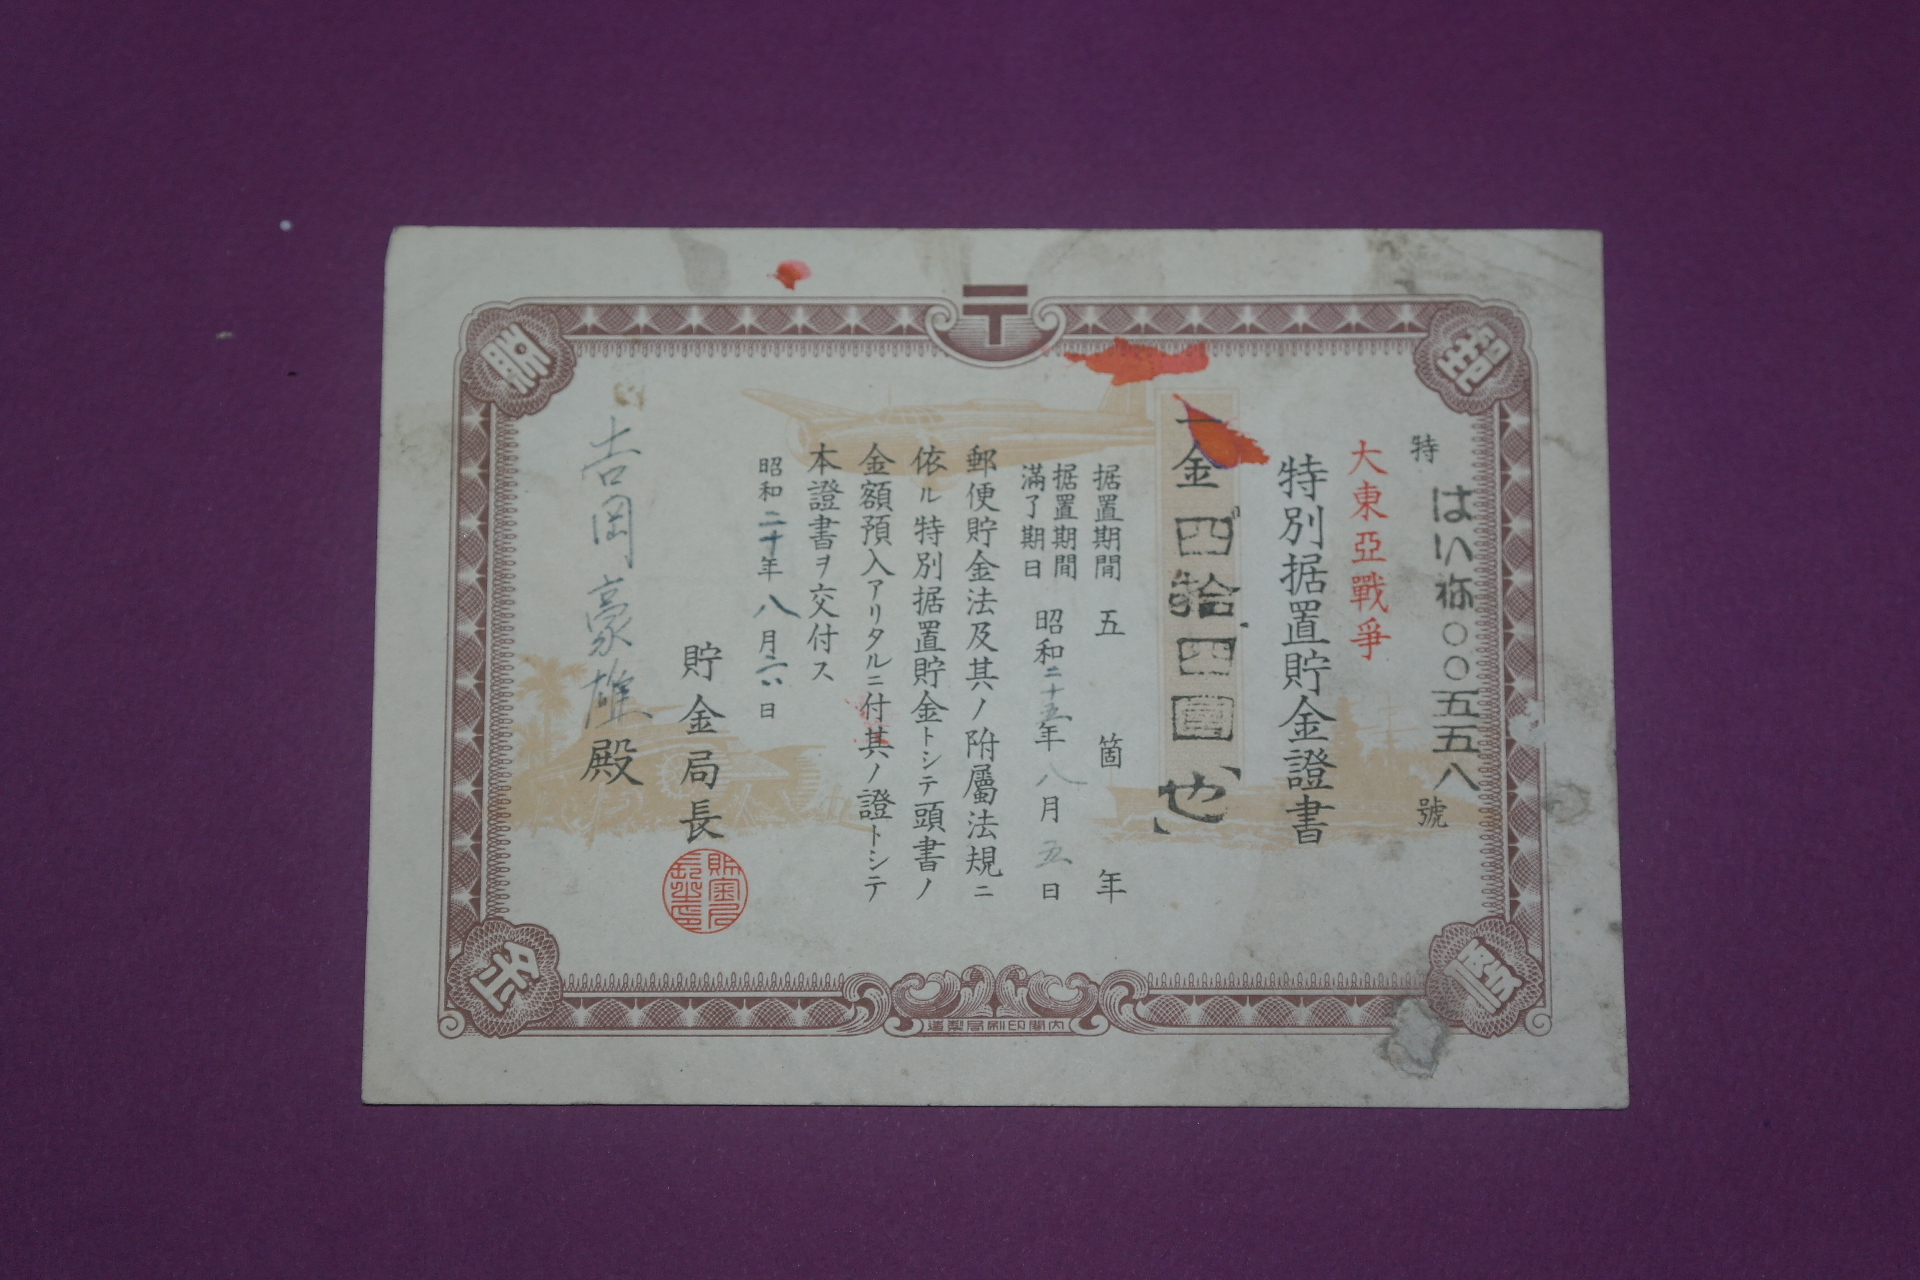 特 はハ祢〇〇五五八 號
大東亞戰爭
特別据置貯金證書
一金四拾四圓也
据置期間 五箇年
据置期間滿了期日 昭和二十五年八月五日
郵便貯金法及其ノ附屬法規ニ
依ル特別据置貯金トシテ頭書ノ
金額預入アリタルニ付其ノ證トシテ
本證書ヲ交付ス
昭和二十年八月六日
貯金局長
吉岡豪雄殿
内閣印刷局製造